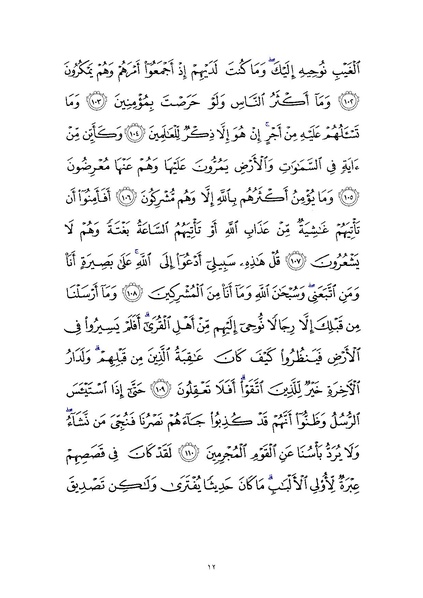 ٱلْغَيْبِ نُوحِيهِ إِلَيْكَۖ وَمَا كُنتَ لَدَيْهِمْ إِذْ أَجْمَعُوٓا۟ أَمْرَهُمْ وَهُمْ يَمْكُرُونَ
١٠٢ وَمَآ أَكْثَرُ ٱلنَّاسِ وَلَوْ حَرَصْتَ بِمُؤْمِنِينَ ١٠٣ وَمَا
تَسْـَٔلُهُمْ عَلَيْهِ مِنْ أَجْرٍۚ إِنْ هُوَ إِلَّا ذِكْرٌ لِّلْعَـٰلَمِينَ ١٠٤ وَكَأَيِّن مِّنْ
ءَايَةٍ فِى ٱلسَّمَـٰوَٰتِ وَٱلْأَرْضِ يَمُرُّونَ عَلَيْهَا وَهُمْ عَنْهَا مُعْرِضُونَ
١٠٥ وَمَا يُؤْمِنُ أَكْثَرُهُم بِٱللَّهِ إِلَّا وَهُم مُّشْرِكُونَ ١٠٦ أَفَأَمِنُوٓا۟ أَن
تَأْتِيَهُمْ غَـٰشِيَةٌ مِّنْ عَذَابِ ٱللَّهِ أَوْ تَأْتِيَهُمُ ٱلسَّاعَةُ بَغْتَةً وَهُمْ لَا
يَشْعُرُونَ ١٠٧ قُلْ هَـٰذِهِۦ سَبِيلِىٓ أَدْعُوٓا۟ إِلَى ٱللَّهِۚ عَلَىٰ بَصِيرَةٍ أَنَا۠
وَمَنِ ٱتَّبَعَنِىۖ وَسُبْحَـٰنَ ٱللَّهِ وَمَآ أَنَا۠ مِنَ ٱلْمُشْرِكِينَ ١٠٨ وَمَآ أَرْسَلْنَا
مِن قَبْلِكَ إِلَّا رِجَالًا نُّوحِىٓ إِلَيْهِم مِّنْ أَهْلِ ٱلْقُرَىٰٓۗ أَفَلَمْ يَسِيرُوا۟ فِى
ٱلْأَرْضِ فَيَنظُرُوا۟ كَيْفَ كَانَ عَـٰقِبَةُ ٱلَّذِينَ مِن قَبْلِهِمْۗ وَلَدَارُ
ٱلْـَٔاخِرَةِ خَيْرٌ لِّلَّذِينَ ٱتَّقَوْا۟ۗ أَفَلَا تَعْقِلُونَ ١٠٩ حَتَّىٰٓ إِذَا ٱسْتَيْـَٔسَ
ٱلرُّسُلُ وَظَنُّوٓا۟ أَنَّهُمْ قَدْ كُذِبُوا۟ جَآءَهُمْ نَصْرُنَا فَنُجِّىَ مَن نَّشَآءُۖ
وَلَا يُرَدُّ بَأْسُنَا عَنِ ٱلْقَوْمِ ٱلْمُجْرِمِينَ ١١٠ لَقَدْ كَانَ فِى قَصَصِهِمْ
عِبْرَةٌ لِّأُو۟لِى ٱلْأَلْبَـٰبِۗ مَا كَانَ حَدِيثًا يُفْتَرَىٰ وَلَـٰكِن تَصْدِيقَ
١٢